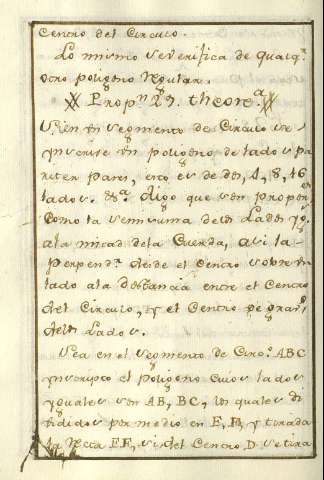 Centro del Circulo.
Lo mismo se verifica de qualq.r
otro poligono regular.
Propn 29. theore.a
Si en un segmento de Circulo se
ynscrive un poligono de lados pa
riter pares, esto es de dos, 4, 8, 16
lados. &.a Digo que son propor.en
Como la semisuma de los Lados yg.s
ala mitad dela Cuerda, asi la
Perpend.r desde el Centro sobre un
lado ala distancia entre el Centro
del Circulo, y el Centro de grav.d
delos Lados.
Sea en el segmento de Circ.o ABC
ynscripto el poligono cuios lados
yguales son AB, BC, los quales di
vididos por medio en E, F, y tirada
la recta EF, si del Centro D se tira